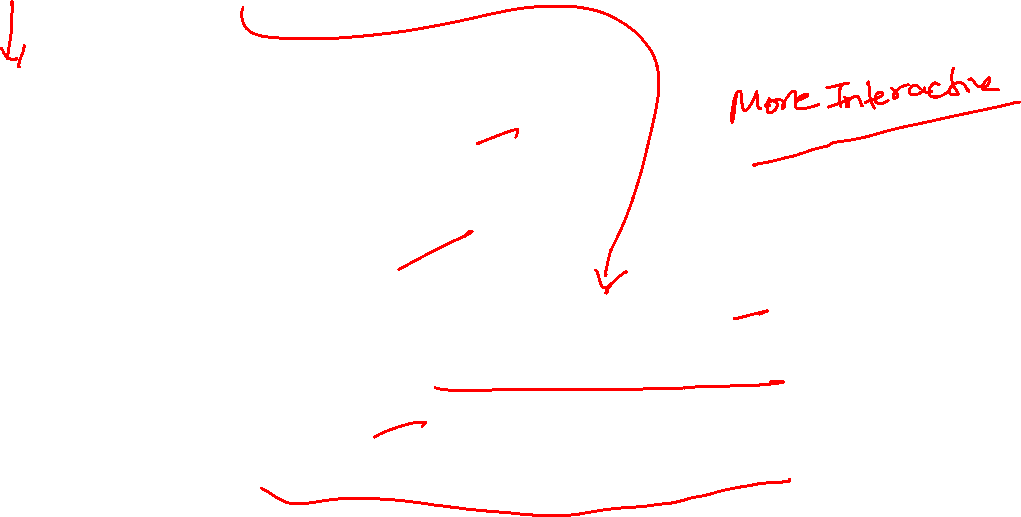 More Interactive